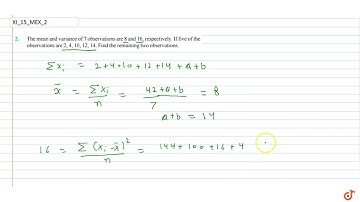 XI_15_MEX_2
2. The mean and variance of 7 observations are 8 and 16, respectively. If five of the
observations are 2, 4, 10, 12, 14. Find the remaining two observations.
Σxi = 2+4+10+12+14+a+b
x̄ = Σxi / n = 42+a+b / 7 = 8
a+b = 14
16 = Σ(xi - x̄)² / n = 144+100+16+4